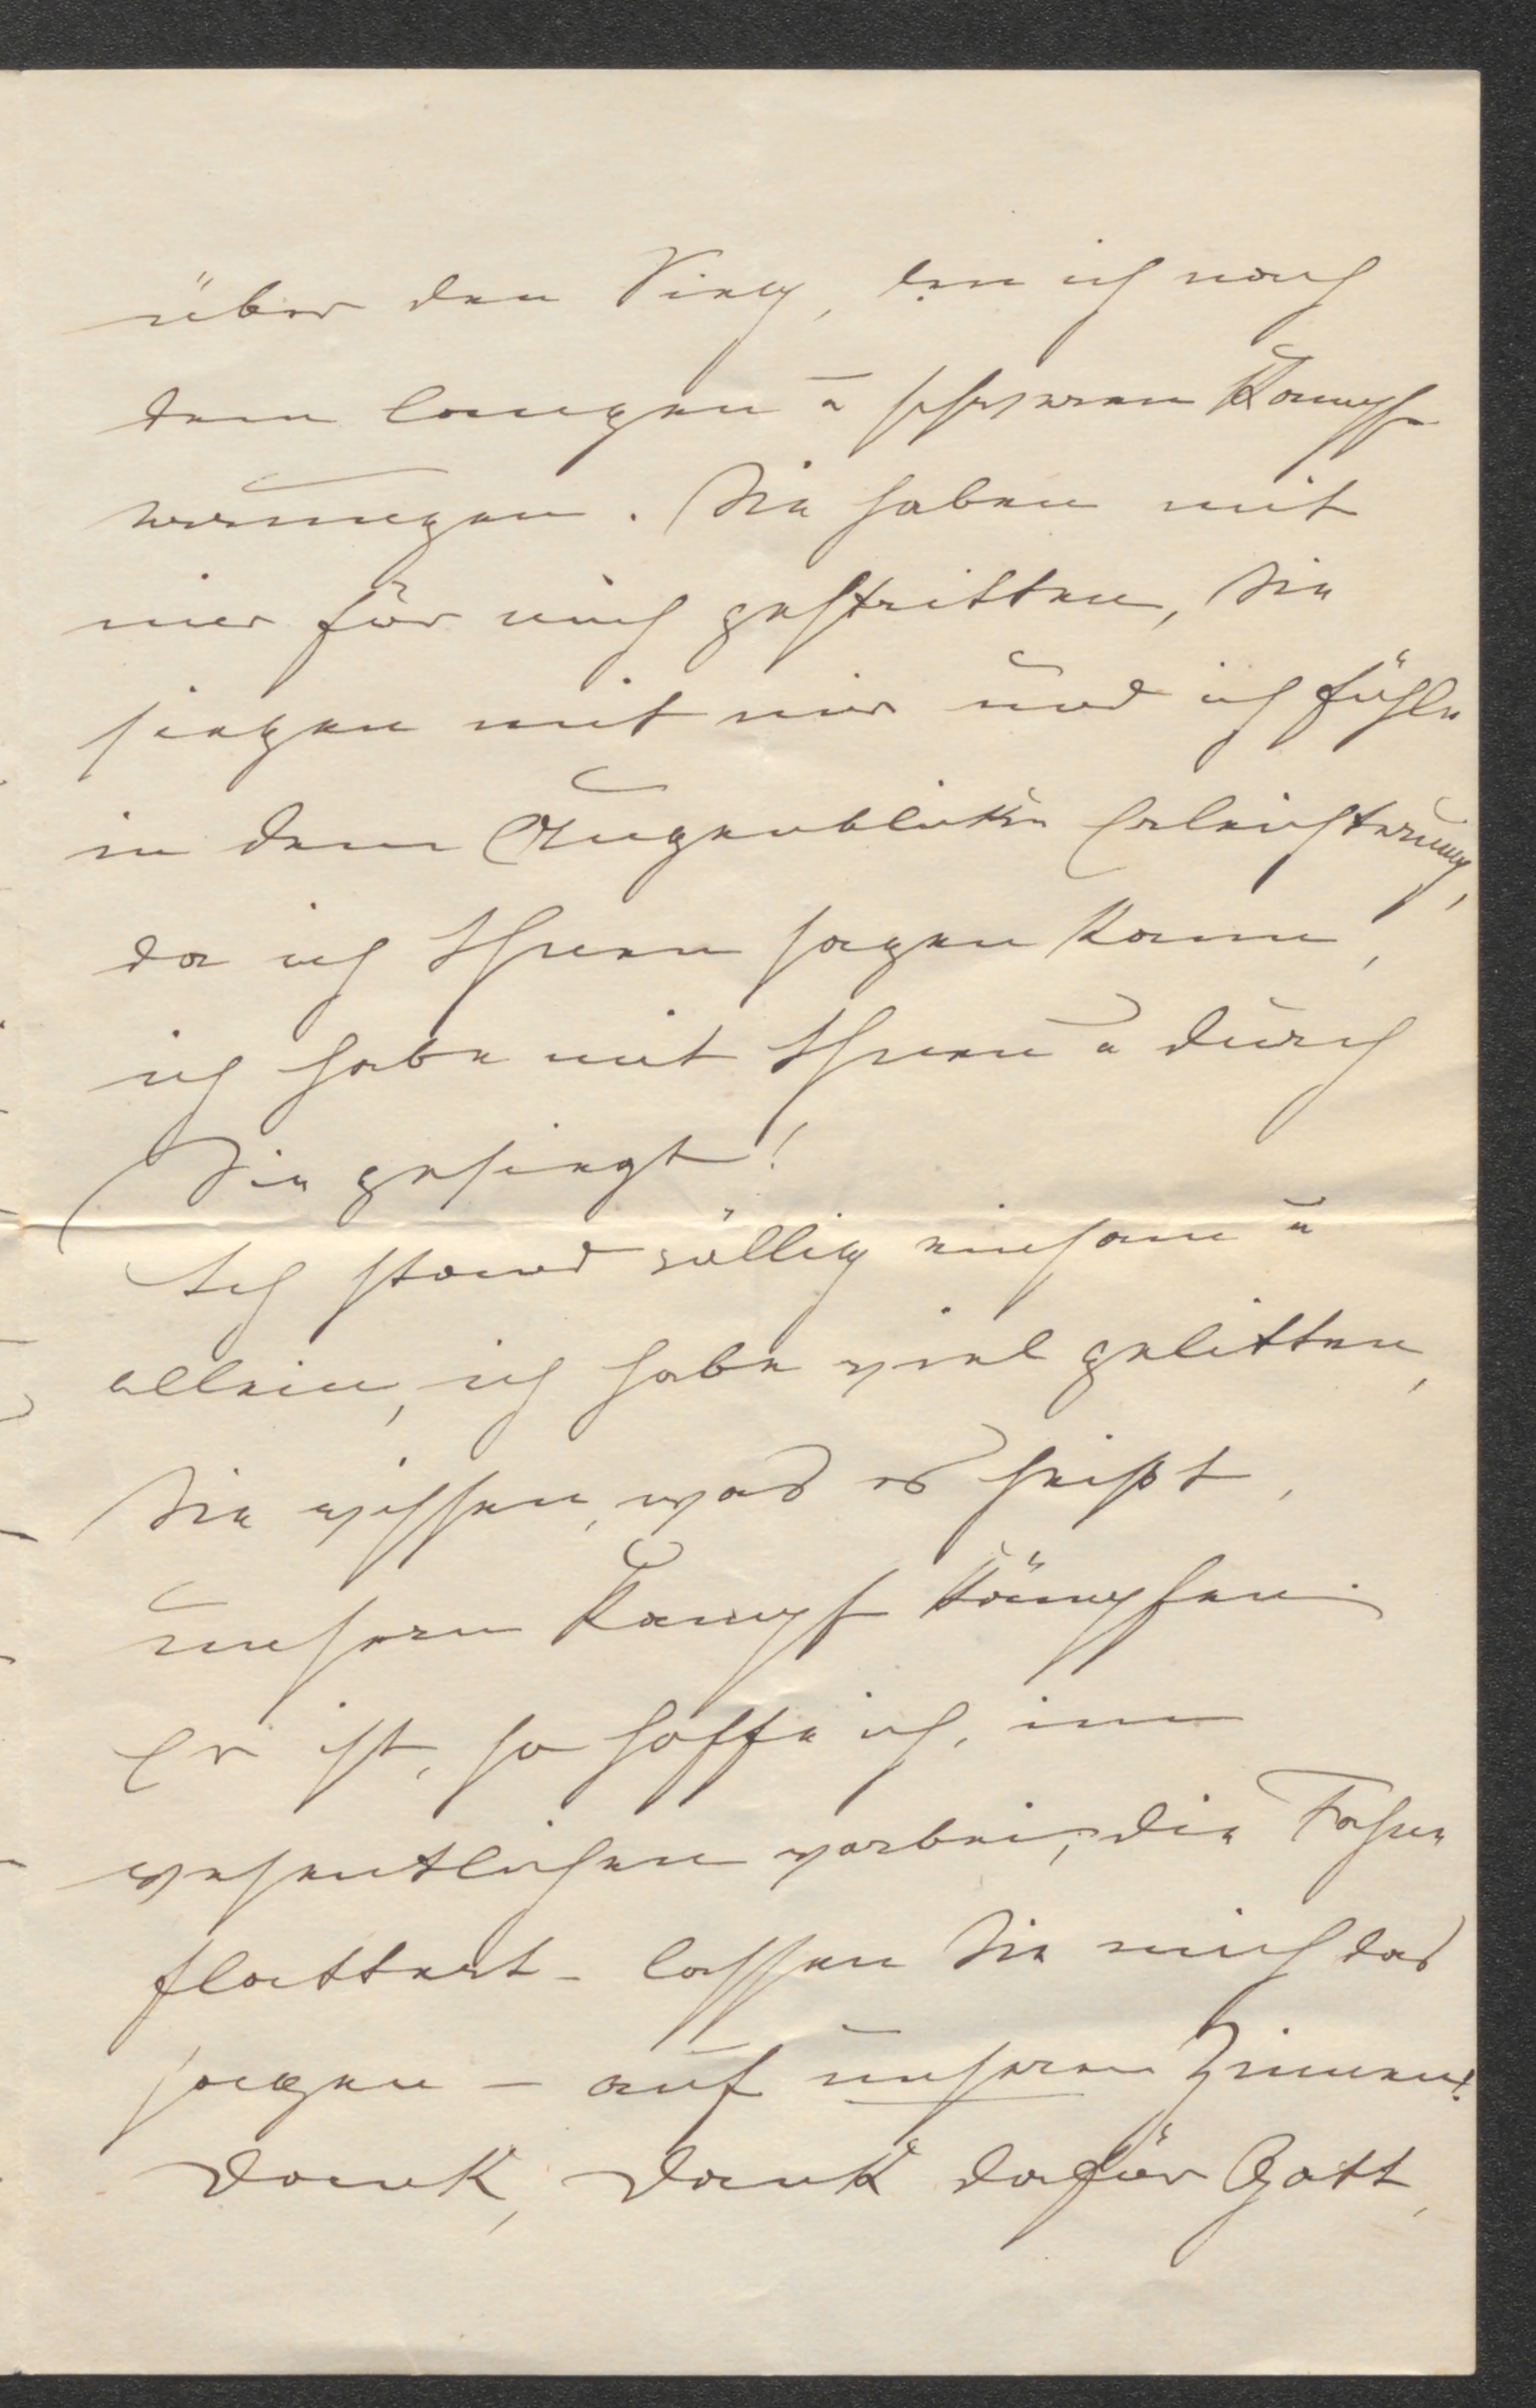 über den Sieg, den ich nach
dem langen u schweren Kampfe
errungen. Sie haben mit
mir für mich gestritten, Sie
siegen mit mir und ich fühle
in dem Augenblicke Erleichterung,
da ich Ihnen sagen kann,
ich habe mit Ihnen u durch
Sie gesiegt!
Ich stand völlig einsam u
allein, ich habe viel gelitten,
Sie wissen, was es heißt,
unsern Kampf kämpfen.
Er ist, so hoffe ich, im
wesentlichen vorbei, die Fahne
flattert – lassen Sie mich das
sagen – auf unseren Zinnen!
Dank, Dank dafür Gott,